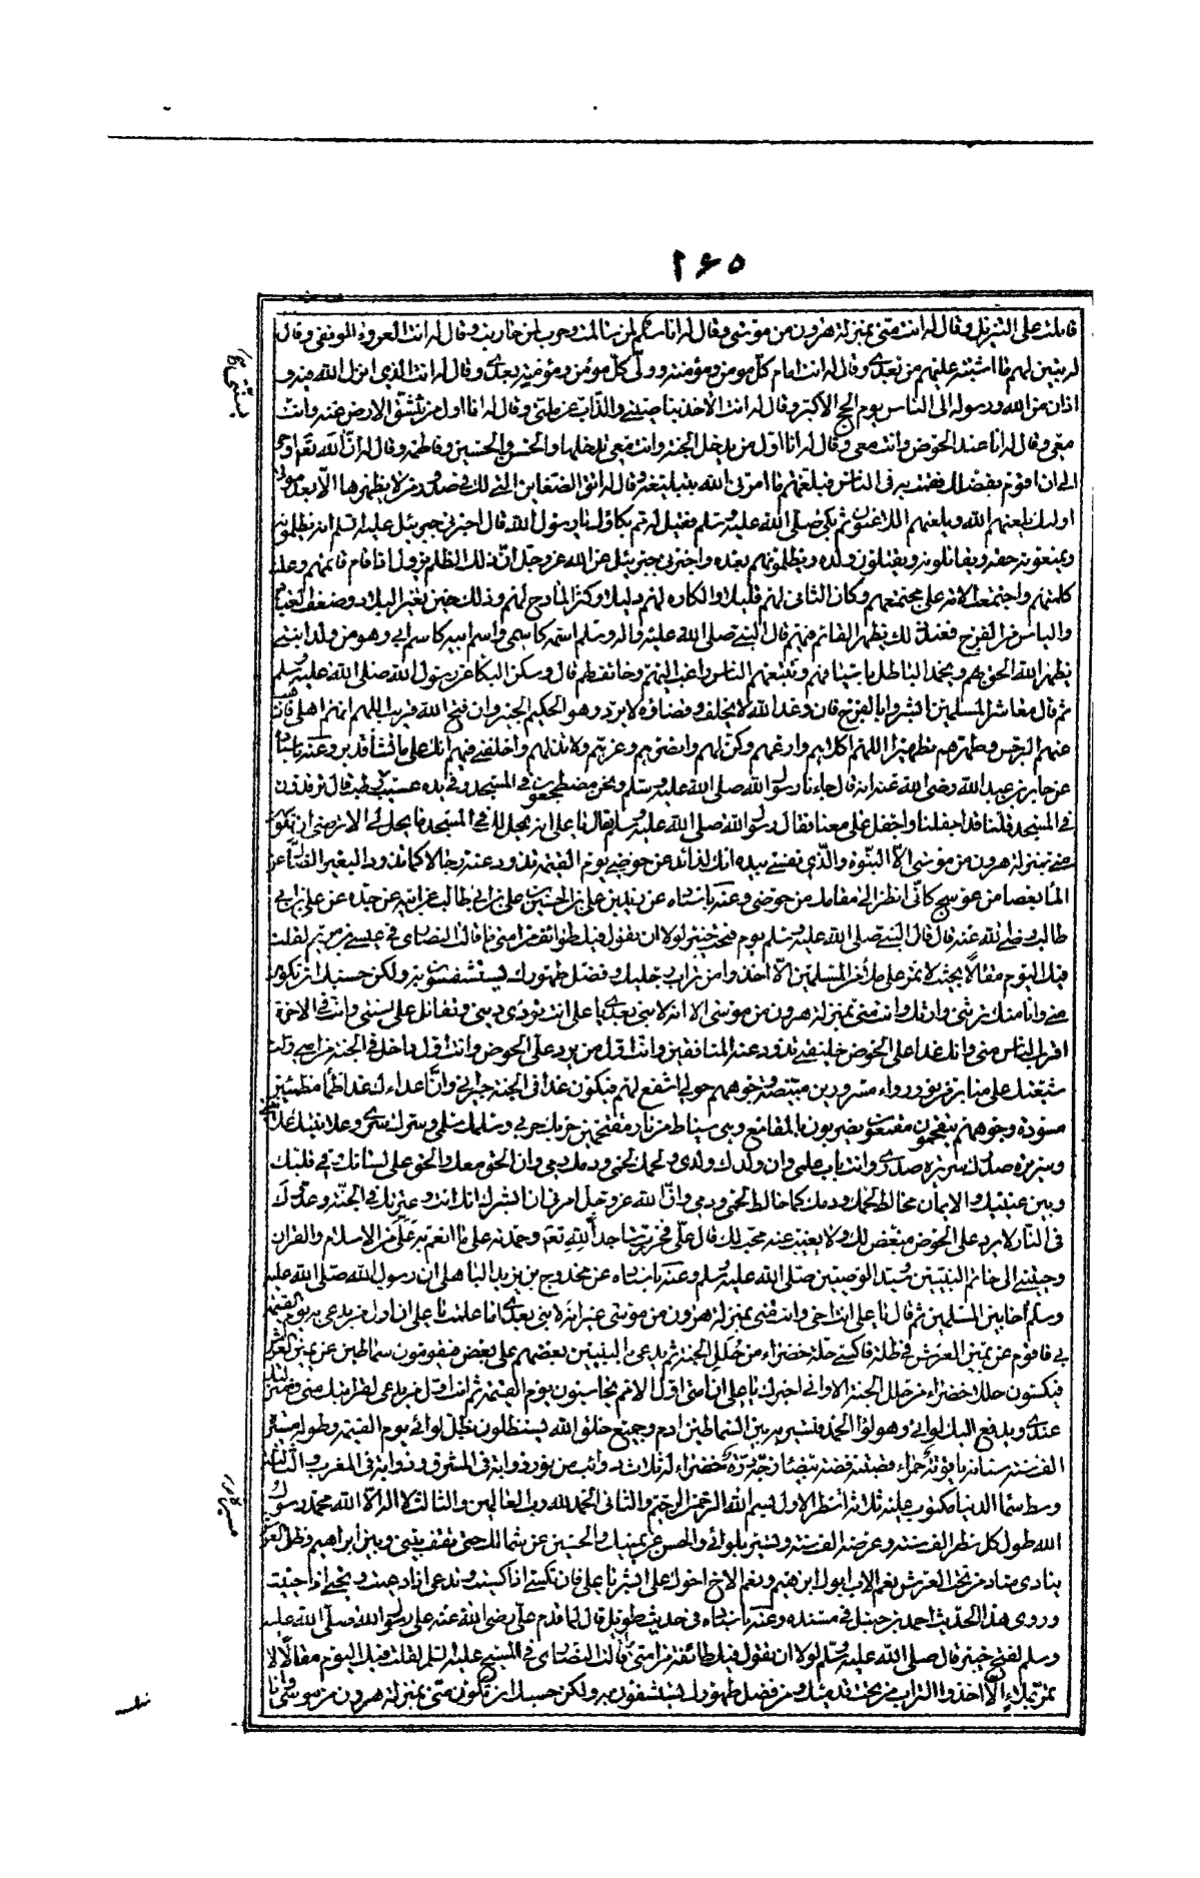 ٢٦٥
قاتلت على التنزيل وقال له انت منى بمنزلة هرون من موسى وقال له انا سلم لمن سالمت وحرب لمن حاربت وقال له انت العروة الوثقى وقال
له تبين لهم ما اشتبه عليهم من بعدى وقال له انت امام كل مومن ومؤمنة وولى كل مومن ومؤمنة بعدى وقال له انت الذى انزل الله فيه و
اذان من الله ورسوله الى الناس يوم الحج الاكبر وقال له انت الآخذ بسنتى والذاب عن ملتى وقال له انا اول من تنشق الارض عنه وانت
معى وقال له انا عند الحوض وانت معى وقال له انا اول من يدخل الجنة وانت معى تدخلها والحسن والحسين وفاطمة وقال له ان الله تعالى اوحى
الى ان اقوم بفضلك فقمت به فى الناس فبلغتهم ما امرنى الله بتبليغه وقال له اتق الضغاين التى لك فى صدور من لا يظهرها الا بعد موتى
اولئك يلعنهم الله ويلعنهم اللاعنون ثم بكى صلى الله عليه وسلم فقيل له مم بكاؤك يا رسول الله قال اخبرنى جبرئيل عليه السلم انهم يظلمونه
ويمنعونه حقه ويقاتلونه ويقتلون ولده ويظلمونهم بعده واخبرنى جبرئيل عن الله عز وجل ان ذلك الظلم يزول اذا قام قائمهم وعلت
كلمتهم واجتمعت الامة على محبتهم وكان الشانى لهم قليلا والكاره لهم ذليلا وكثر المادح لهم وذلك حين تغير البلاد وضعف العباد
والياس من الفرج فعند ذلك يظهر القائم فيهم قال النبى صلى الله عليه واله وسلم اسمه كاسمى واسم ابيه كاسم ابى وهو من ولد ابنتى
يظهر الله الحق بهم ويخمد الباطل باسيافهم ويتبعهم الناس راغب اليهم وخائف لهم قال وسكن البكا عن رسول الله صلى الله عليه وسلم
ثم قال معاشر المسلمين ابشروا بالفرج فان وعد الله لا يخلف وقضاؤه لا يرد وهو الحكيم الخبير وان فتح الله قريب اللهم انهم اهلى فاذهب
عنهم الرجس وطهرهم تطهيرا اللهم اكلاهم وارعهم وكن لهم وانصرهم وعزهم ولا تذلهم واخلفنى فيهم انك على ما تشاء قدير وعنه باسناده
عن جابر بن عبد الله رضى الله عنه انه قال جاءنا رسول الله صلى الله عليه وسلم ونحن مضطجعون فى المسجد وفى يده عسيب رطب قال ترقدون
فى المسجد قلنا قد اجفلنا واجفل على معنا فقال رسول الله صلى الله عليه وسلم تعال يا على انه يحل لك فى المسجد ما يحل لى الا ترضى ان تكون
منى بمنزلة هرون من موسى الا النبوة والذى نفسى بيده انك لذائد عن حوضى يوم القيمة تذود عنه رجالا كما يذاد البعير الضال عن
الماء بعصا من عوسج كانى انظر الى مقامك من حوضى وعنه باسناده عن زيد بن على بن الحسين بن على بن ابى طالب عن ابيه عن جده عن على بن ابى
طالب رضى الله عنه قال قال النبى صلى الله عليه وسلم يوم فتحت خيبر لولا ان يقول فيك طوائف من امتى ما قالت النصارى فى عيسى بن مريم لقلت
فيك اليوم مقالا بحيث لا تمر على ملأ من المسلمين الا اخذوا من تراب رجليك وفضل طهورك ليستشفون به ولكن حسبك ان تكون
منى وانا منك ترثنى وارثك وانت منى بمنزلة هرون من موسى الا انه لا نبى بعدى يا على انت تؤدى دينى وتقاتل على سنتى وانت فى الاخرة
اقرب الناس منى وانك غدا على الحوض خليفتى تذود عنه المنافقين وانت اول من يرد على الحوض وانت اول داخل فى الجنة من امتى وان
شيعتك على منابر من نور رواء مسرورين مبيضة وجوههم حولى اشفع لهم فيكونون غدا فى الجنة جيرانى وان اعداءك غدا ظماء مظمئين
مسودة وجوههم مقمحون مقمعون يضربون بالمقامع وهى سياط من نار مقتحمين حربك حربى وسلمك سلمى وسرك سرى وعلانيتك علانيتى
وسريرة صدرك سريرة صدرى وانت باب علمى وان ولدك ولدى ولحمك لحمى ودمك دمى وان الحق معك والحق على لسانك فى قلبك
وبين عينيك والايمان مخالط لحمك ودمك كما خالط لحمى ودمى وان الله عز وجل امرنى ان ابشرك انك انت وعترتك فى الجنة وعدوك
فى النار لا يرد على الحوض مبغض لك ولا يغيب عنه محب لك قال على فخررت ساجدا لله تعالى وحمدته على ما انعم به على من الاسلام والقران
وحببنى الى خاتم النبيين وسيد الوصيين صلى الله عليه وسلم وعنه باسناده عن مخدوج بن يزيد الباهلى ان رسول الله صلى الله عليه
وسلم اخا بين المسلمين ثم قال يا على انت اخى وانت منى بمنزلة هرون من موسى غير انه لا نبى بعدى اما علمت يا على ان اول من يدعى به يوم القيمة
بى فاقوم عن يمين العرش فى ظله فاكسى حلة خضراء من حلل الجنة ثم يدعى بالنبيين بعضهم على بعض فيقومون سماطين عن يمين العرش
فيكسون حللا خضراء من حلل الجنة الا وانى اخبرك يا على ان امتى اول الامم يحاسبون يوم القيمة ثم انت اول من يدعى لقرابتك منى ومنزلتك
عندى ويدفع اليك لوائى وهو لواء الحمد فتسير به بين السماطين ادم وجميع خلق الله يستظلون بظل لوائى يوم القيمة وطوله مسيرة
الف سنة سنانه ياقوتة حمراء قضيبه فضة بيضاء زجه درة خضراء له ثلاث ذوائب من نور ذوابة فى المشرق وذوابة فى المغرب والثالثة
وسط سماء الدنيا مكتوب عليه ثلاثة اسطر الاول بسم الله الرحمن الرحيم والثانى الحمد لله رب العالمين والثالث لا اله الا الله محمد رسول
الله طول كل سطر الف سنة وعرضه الف سنة وتسير بلوائى والحسن عن يمينك والحسين عن شمالك حتى تقف بينى وبين ابراهيم فى ظل العرش
ينادى مناد من تحت العرش نعم الاب ابوك ابرهيم ونعم الاخ اخوك على ابشر يا على فانك تكسى اذا كسيت وتدعى اذا دعيت وتحيى اذا حييت
وروى هذا الحديث احمد بن حنبل فى مسنده وعنه باسناده فى حديث طويل قال لما قدم على رضى الله عنه على رسول الله صلى الله عليه
وسلم لفتح خيبر قال صلى الله عليه وسلم لولا ان تقول فيك طائفة من امتى ما قالت النصارى فى المسيح عليه السلم لقلت فيك اليوم مقالا لا
تمر بملاء الا اخذوا التراب من تحت قدميك ومن فضل طهورك ليستشفون به ولكن حسبك ان تكون منى بمنزلة هرون من موسى وانا